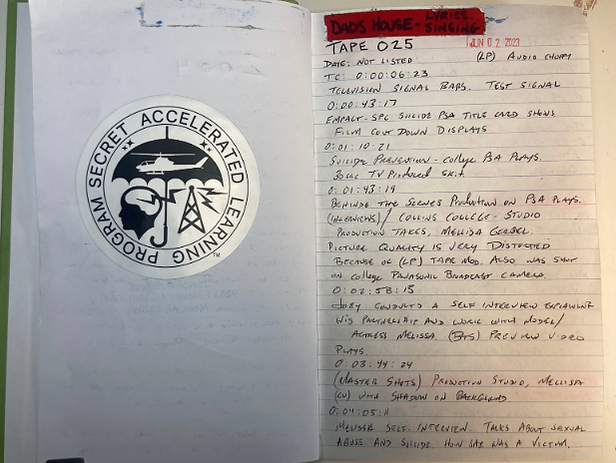 SECRET ACCELERATED LEARNING PROGRAM
TM
DADS HOUSE - LYRICS
SINGING
TAPE 025
JUN 02 2023
DATE: NOT LISTED (LP) AUDIO CHOPPY
TC: 0:00:06:23
TELEVISION SIGNAL BARS. TEST SIGNAL
0:00:43:17
EMPACT-SPC SUICIDE PSA TITLE CARD SHOWS
FILM COUNT DOWN DISPLAYS
0:01:10:21
SUICIDE PREVENTION - COLLEGE PSA PLAYS.
30sec TV PRODUCED SKIT.
0:01:43:19
BEHIND THE SCENES PRODUCTION ON PSA PLAYS.
(INTERVIEWS) / COLLINS COLLEGE - STUDIO
PRODUCTION TAKES, MELLISA
PICTURE QUALITY IS VERY DISTORTED
BECAUSE OF (LP) TAPE MOD. ALSO WAS SHOT
ON COLLEGE PANASONIC BROADCAST CAMERA.
0:02:58:13
JOEY CONDUCTS A SELF INTERVIEW EXPLAINING
HIS PARTNERSHIP AND WORK WITH MODEL/
ACTRESS MELISSA. (BTS) PREVIEW VIDEO
PLAYS.
0:03:44:24
(MASTER SHOTS) PRODUCTION STUDIO, MELLISSA
(CU) WITH SHADOW ON BACKGROUND
0:04:05:11
MELISSA SELF INTERVIEW. TALKS ABOUT SEXUAL
ABUSE AND SUICIDE. HOW SHE WAS A VICTIM.